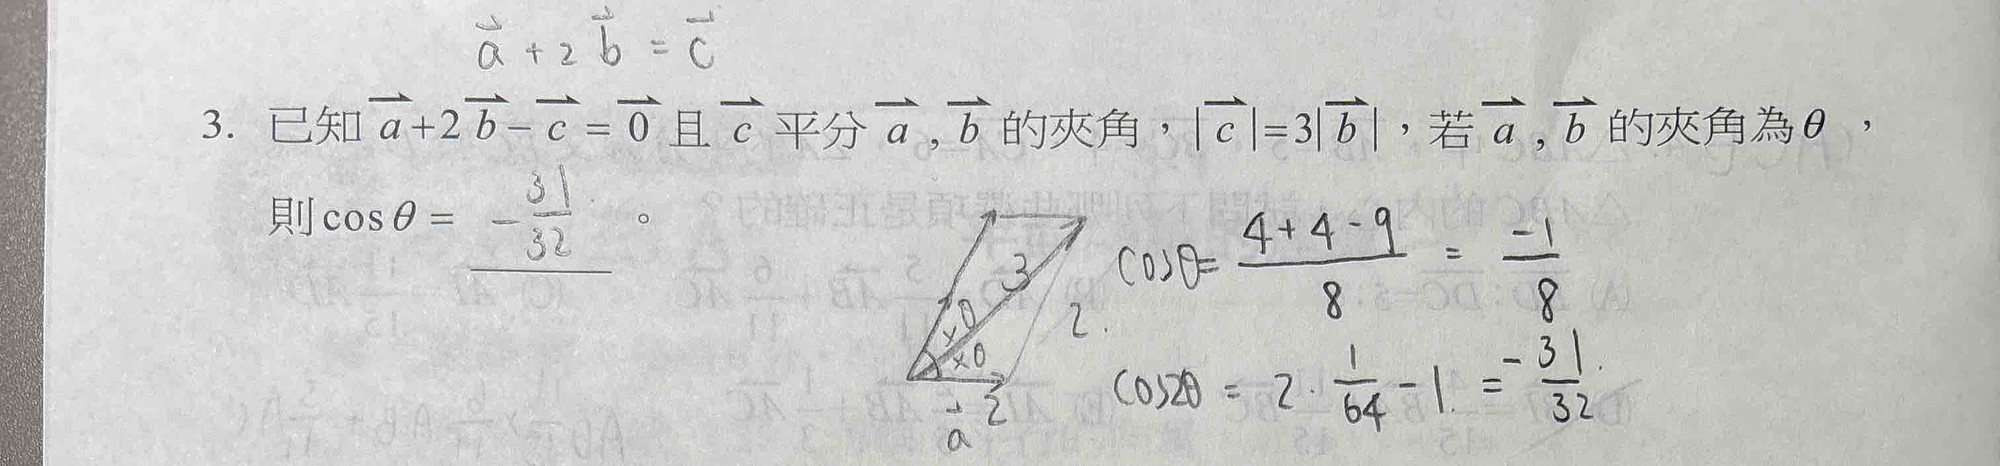 a + 2b = c
3. 已知 a+2b−c=0 且 c 平分 a , b 的夾角，|c|=3|b|，若 a , b 的夾角為θ，
則 cosθ = -31/32 。
cosθ = (4+4-9)/8 = -1/8
3
2.
×θ
×θ
a 2
cos2θ = 2 · 1/64 - 1. = -31/32